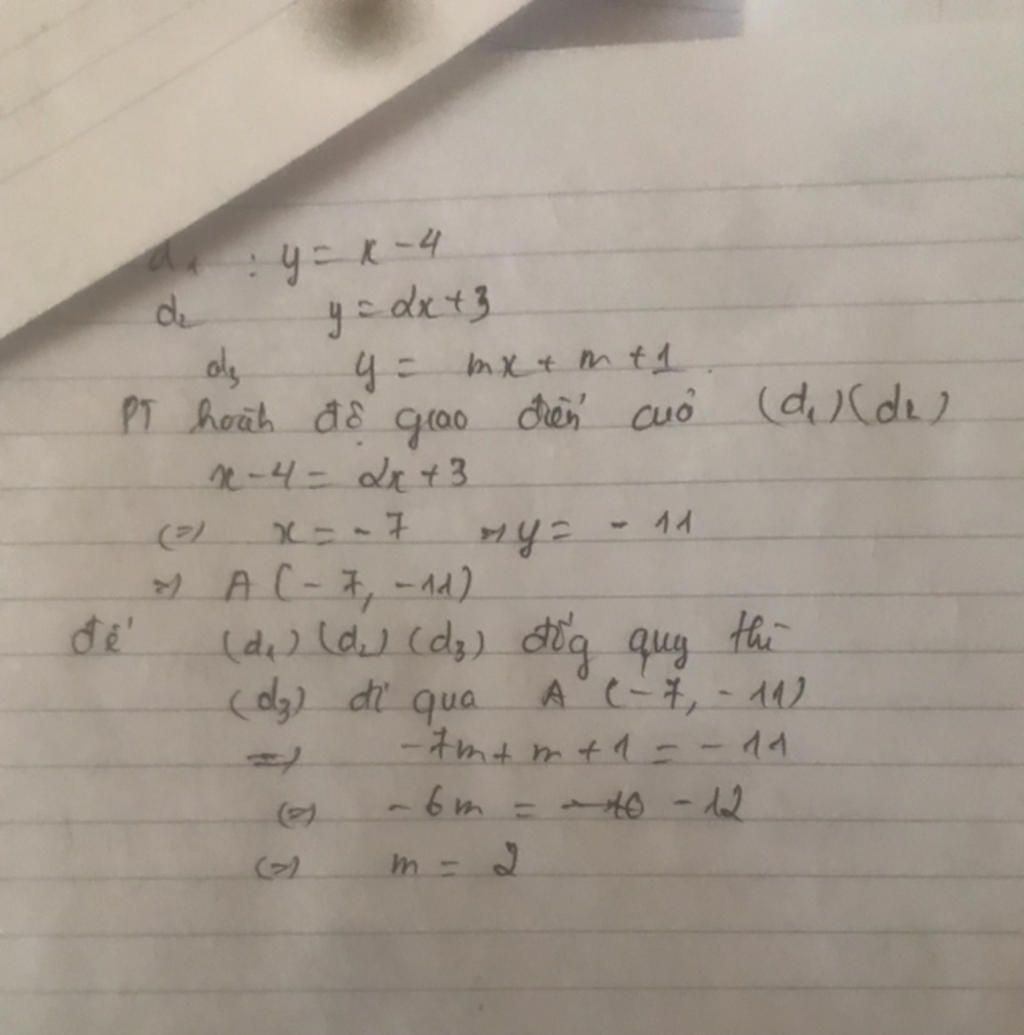 d₁ : y = x - 4
d₂ y = 2x + 3
d₃ y = mx + m + 1.
PT hoành độ giao điểm của (d₁)(d₂)
x - 4 = 2x + 3
(=) x = - 7 => y = - 11
=> A (- 7, - 11)
để (d₁) (d₂) (d₃) đồng quy thì
(d₃) đi qua A (- 7, - 11)
=> - 7m + m + 1 = - 11
(=) - 6m = - 12
(=) m = 2